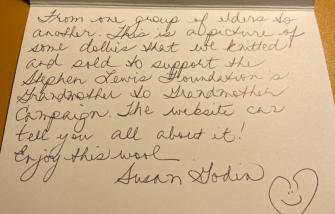 From one group of elders to
another. This is a picture of
some dollies that we knitted
and sold to support the
Stephen Lewis Foundation's
Grandmother to Grandmother
Campaign. The website can
tell you all about it!
Enjoy this wool
Susan Godin